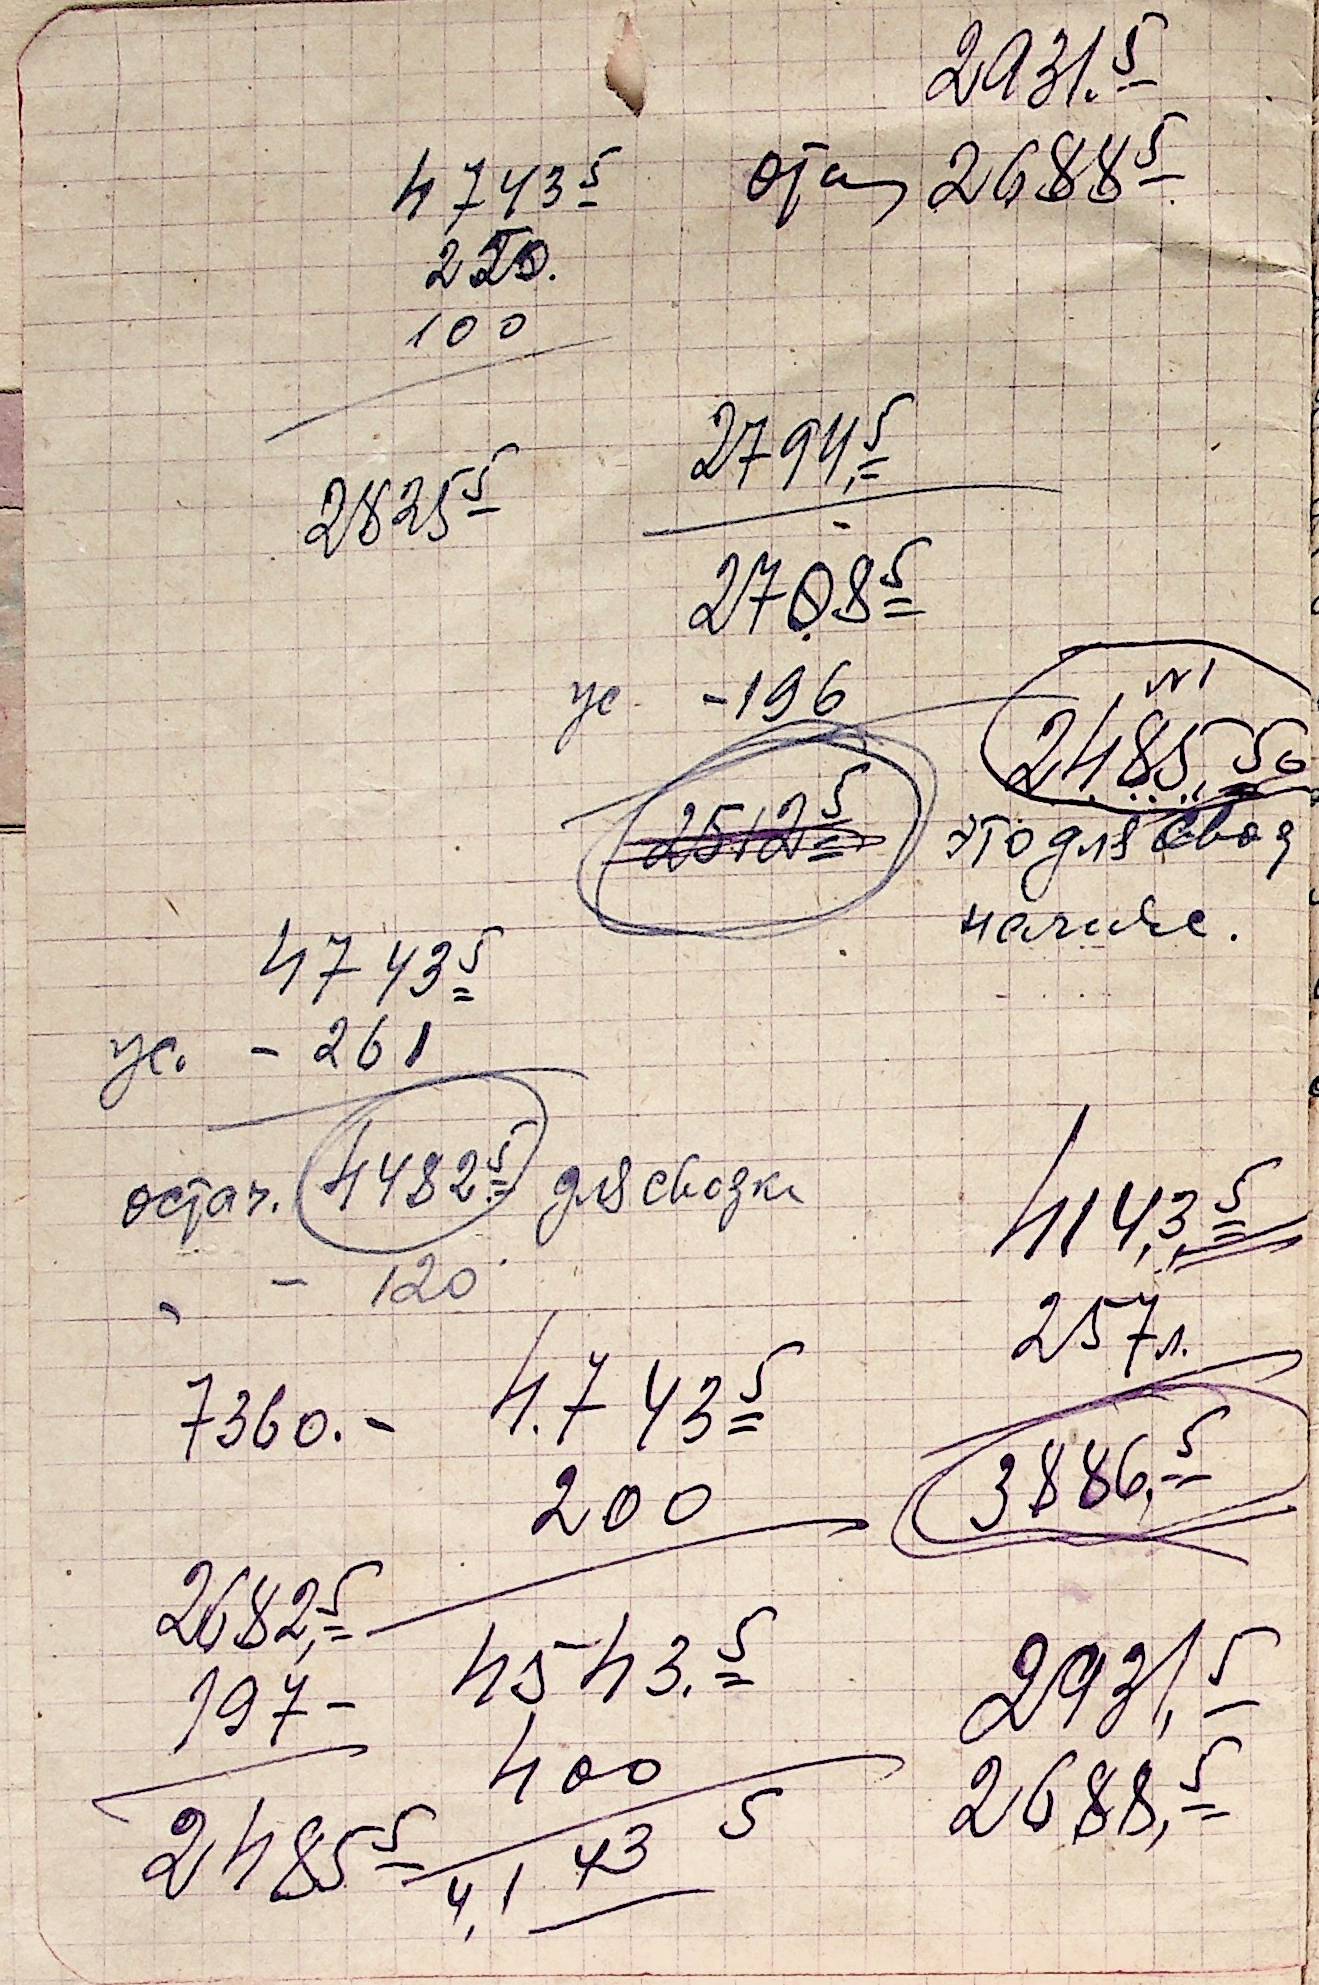 2931.5
4743 5
2688 5
100
2794,5
2825 5
2708 5
ус -196
№1
2485,50
2512 5
это для
4743 5
ус. - 261
остач. 4482 5 для свозки
- 120
4143,5
257л.
7360.- 4.743 5
200
3886,5
2682,5
197-
4543.5
400
2485 5
4,143 5
2931,5
2688,5